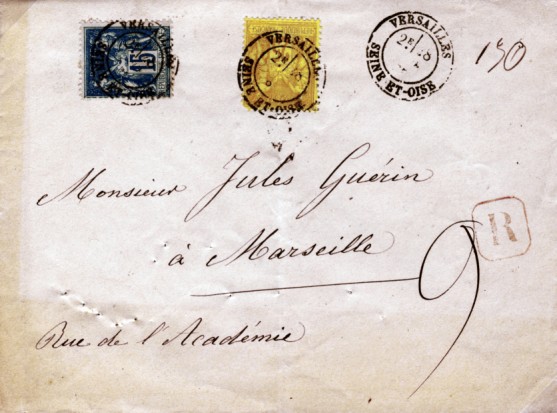 15
VERSAILLES
SEINE ET-OISE
VERSAILLES
SEINE ET-OISE
VERSAILLES
2E
SEINE ET-OISE
130
Monsieur Jules Guérin
à Marseille
R
9
Rue de l'Académie